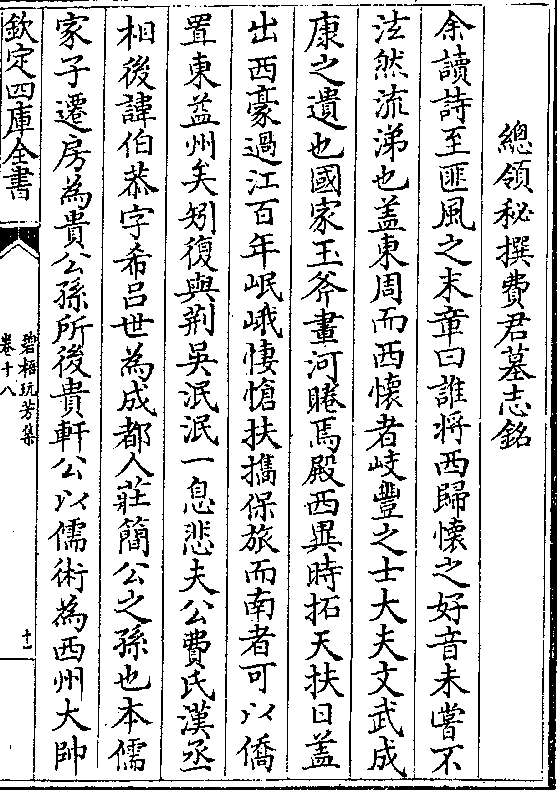 總領秘撰費君墓志銘
余讀詩至匪風之末章曰誰將西歸懷之好音未嘗不
泫然流涕也盖東周而西懷者岐豐之士大夫文武成
康之遺也國家玉斧畫河睠焉殿西異時拓天扶日盖
出西豪過江百年岷峨悽愴扶攜保旅而南者可以僑
置東益州矣矧復與荆吳泯泯一息悲夫公費氏漢丞
相後諱伯恭字希吕世為成都人莊簡公之孫也本儒
家子遷房為貴公孫所後貴軒公以儒術為西州大帥
欽定四庫全書
碧梧玩芳集
卷十八
十一